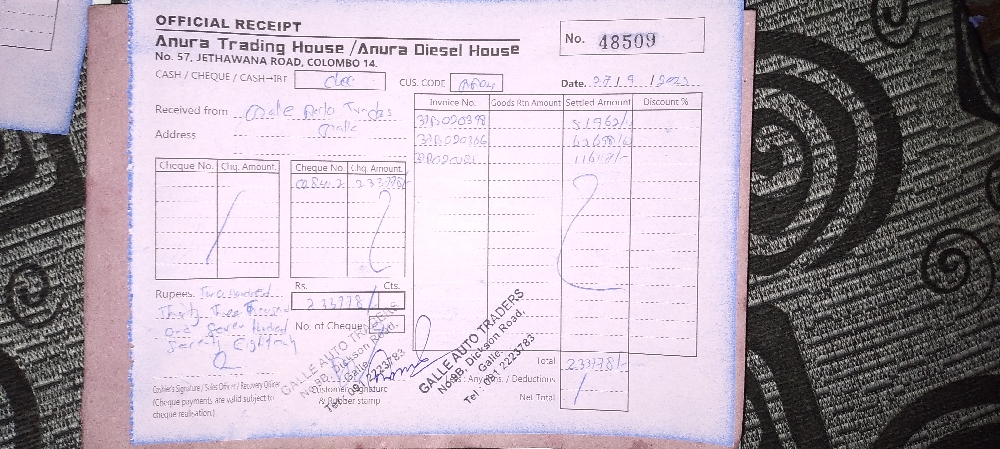 OFFICIAL RECEIPT
Anura Trading House / Anura Diesel House
No. 57, JETHAWANA ROAD, COLOMBO 14.
No. 48509
CASH / CHEQUE / CASH-IBT
CUS. CODE
Date. 27/9/2022
Received from Galle Auto Traders
Address Galle
Invoice No. Goods Rtn Amount Settled Amount Discount %
Cheque No. Chq. Amount.
Cheque No. Chq. Amount.
233778/-
Rupees. Two Hundred
Thirty Three Thousand
and Seven Hundred
Seventy Eight only
Rs. Cts.
233778/-
No. of Cheque
Total 233778/-
Less : Any Rtns. / Deductions
Net Total
Cashier's Signature / Sales Officer / Recovery Officer
(Cheque payments are valid subject to
cheque realisation.)
Customer Signature
& Rubber stamp
GALLE AUTO TRADERS
No. 9B, Dickson Road,
Galle.
Tel : 091 2223783
GALLE AUTO TRADERS
No. 9B, Dickson Road,
Galle.
Tel : 091 2223783